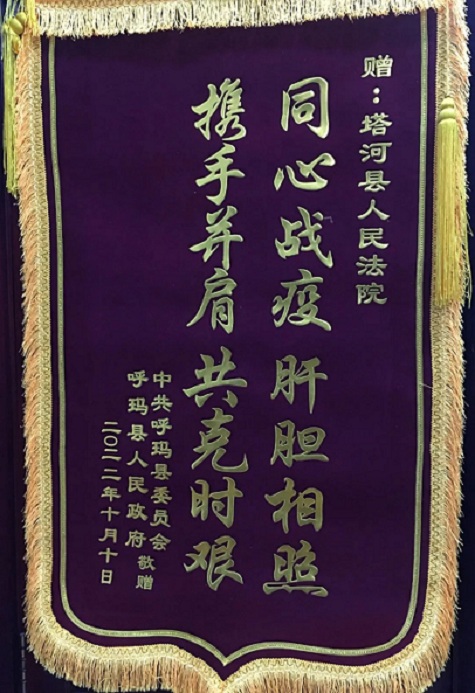 赠：塔河县人民法院
同心战疫 肝胆相照
携手并肩 共克时艰
中共呼玛县委员会
呼玛县人民政府 敬赠
二〇二二年十月十日